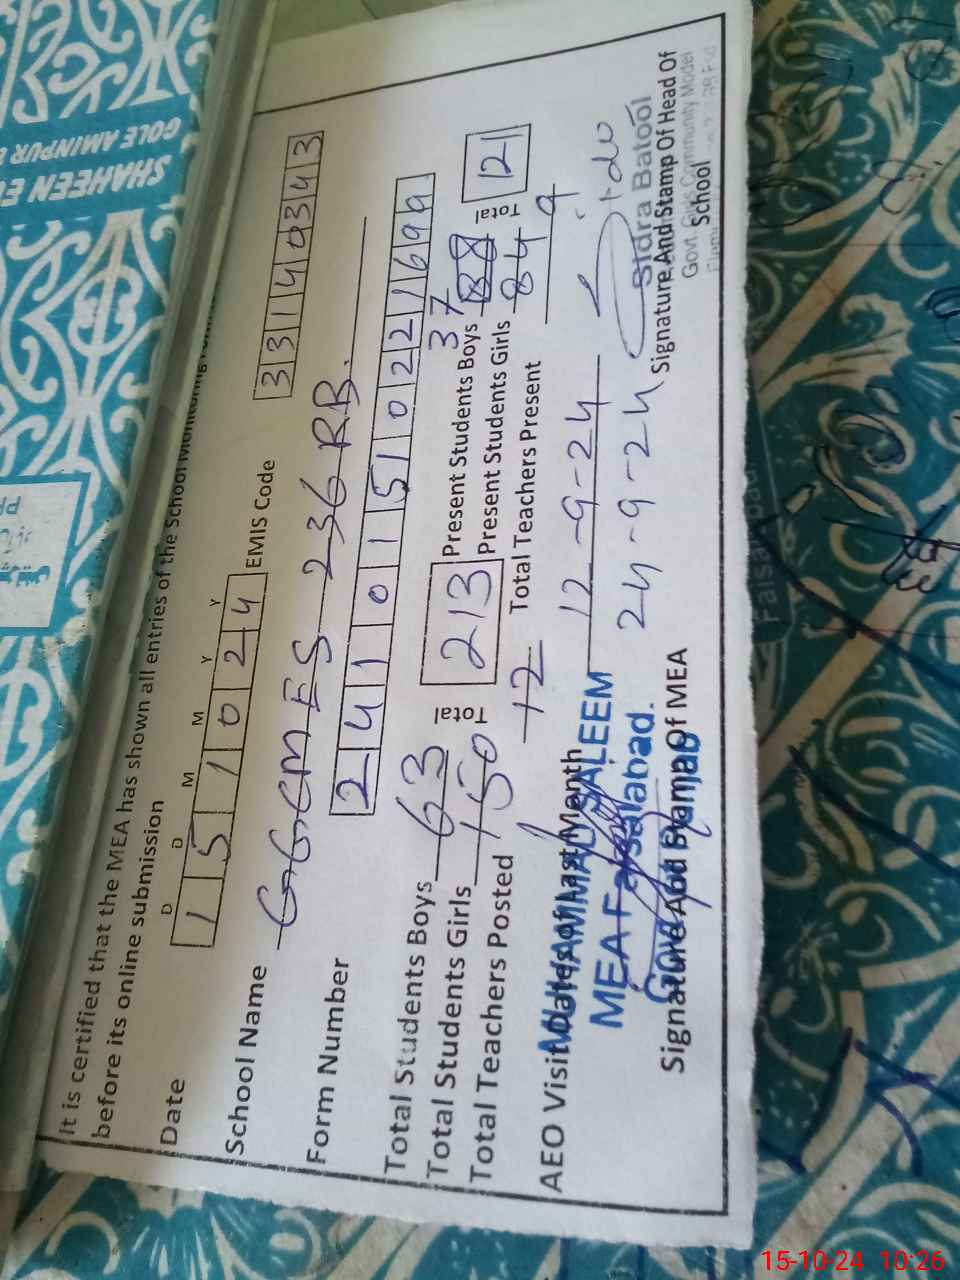 It is certified that the MEA has shown all entries of the School Monitoring
before its online submission
D D M M Y Y
Date 1 5 1 0 2 4 EMIS Code 3 3 1 4 0 3 4 3
School Name GGCMES 236 RB.
Form Number 2 4 1 0 1 5 1 0 2 2 1 6 9 9
Total Students Boys 63 Total 213 Present Students Boys 37 Total 121
Total Students Girls 150 Present Students Girls 84
Total Teachers Posted 12 Total Teachers Present 9
AEO Visit Dates of Last Month 12-9-24
24-9-24
MUHAMMAD SALEEM
MEA Faisalabad.
Govt of Punjab
Signature And Stamp Of MEA
Sidra Batool
Signature And Stamp Of Head Of
School
Govt. Girls Community Model
SHAHEEN
GOLE AMINPUR
Faisalabad
15-10-24 10:26